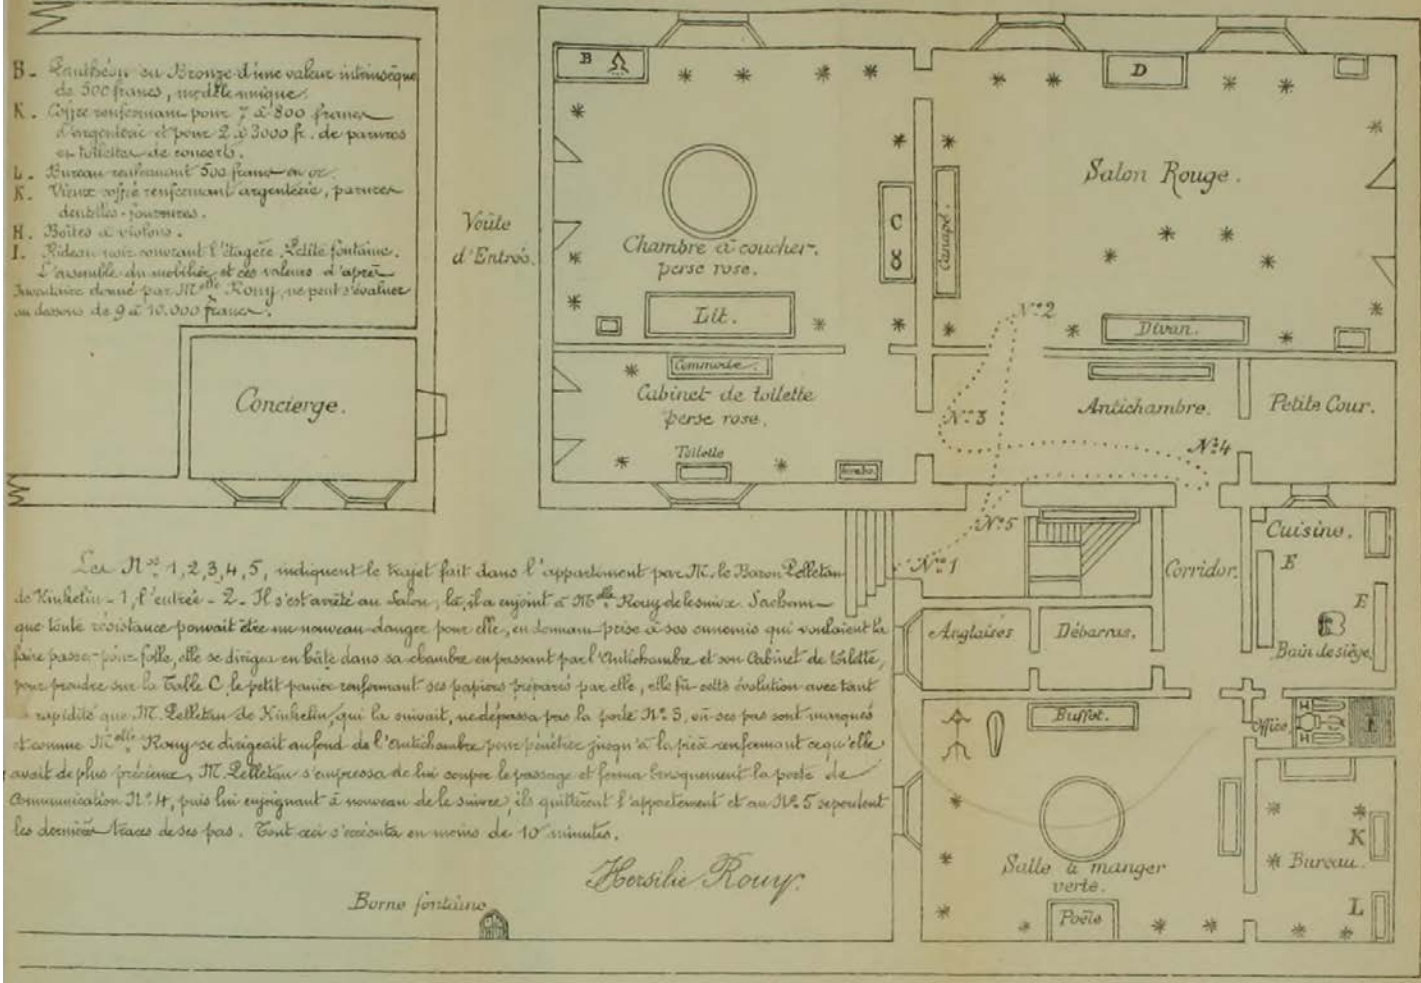 B. Panthéon en Bronze d'une valeur intrinsèque
de 500 francs, modèle unique.
K. Coffre renfermant pour 7 à 800 francs
d'argenterie et pour 2 à 3000 fr. de parures
et toilettes de concerts.
L. Bureau renfermant 500 francs en or.
K. Vieux coffre renfermant argenterie, parures
dentelles-fourrures.
H. Boîtes à violons.
I. Rideau noir couvrant l'étagère Petite fontaine.
L'ensemble du mobilier et des valeurs d'après
inventaire donné par Melle Rouy, ne peut s'évaluer
au dessous de 9 à 10.000 francs.
Concierge.
Voûte
d'Entrée.
B
Chambre à coucher.
perse rose.
C
Lit.
Canapé.
D
Salon Rouge.
Divan.
No 2
Commode.
Cabinet de toilette
perse rose.
Toilette
No 3
Antichambre.
Petite Cour.
No 4
No 5
No 1
Corridor.
Cuisine.
E
E
Bain de siège
Anglaises
Débarras.
Buffet.
Office
H
H
I
Salle à manger
verte.
Poële
K
Bureau.
L
Les Nos 1, 2, 3, 4, 5, indiquent le trajet fait dans l'appartement par M. le Baron Pelletan
de Kinkelin - 1, l'entrée - 2. Il s'est arrêté au Salon, là, il a enjoint à Melle Rouy de le suivre. Sachant
que toute résistance pouvait être un nouveau danger pour elle, en donnant prise à ses ennemis qui voulaient la
faire passer pour folle, elle se dirigea en hâte dans sa chambre en passant par l'Antichambre et son Cabinet de toilette,
pour prendre sur la Table C le petit panier renfermant ses papiers préparés par elle, elle fit cette évolution avec tant
rapidité que M. Pelletan de Kinkelin, qui la suivait, ne dépassa pas la porte No 3, où ses pas sont marqués
et comme Melle Rouy se dirigeait au fond de l'antichambre pour pénétrer jusqu'à la pièce renfermant ce qu'elle
avait de plus précieux, M. Pelletan s'empressa de lui couper le passage et ferma brusquement la porte de
Communication No 4, puis lui enjoignant à nouveau de le suivre, ils quittèrent l'appartement et au No 5 se perdent
les dernières traces de ses pas. Tout ceci s'exécuta en moins de 10 minutes.
Hersilie Rouy.
Borne fontaine